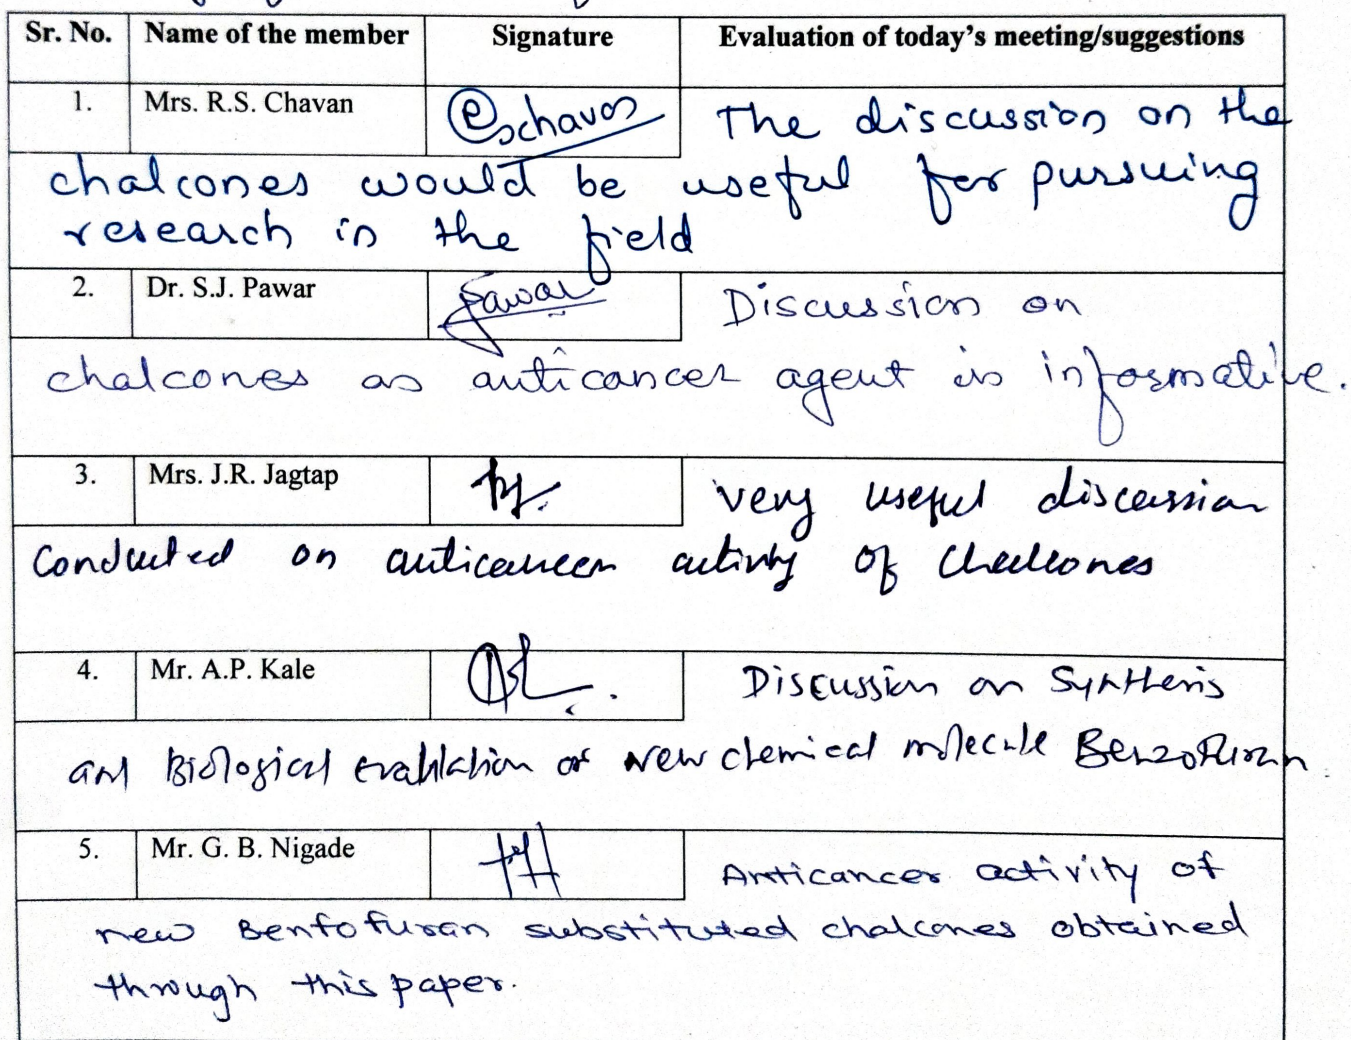 Sr. No. Name of the member Signature Evaluation of today's meeting/suggestions
1. Mrs. R.S. Chavan Rschavan The discussion on the
chalcones would be useful for pursuing
research in the field
2. Dr. S.J. Pawar Pawar Discussion on
chalcones as anticancer agent is informative.
3. Mrs. J.R. Jagtap very useful discussion
conducted on anticancer activity of Chalcones
4. Mr. A.P. Kale Discussion on Synthesis
and Biological evaluation of New chemical molecule Benzofuran
5. Mr. G. B. Nigade Anticancer activity of
new Benfofuran substituted chalcones obtained
through this paper.